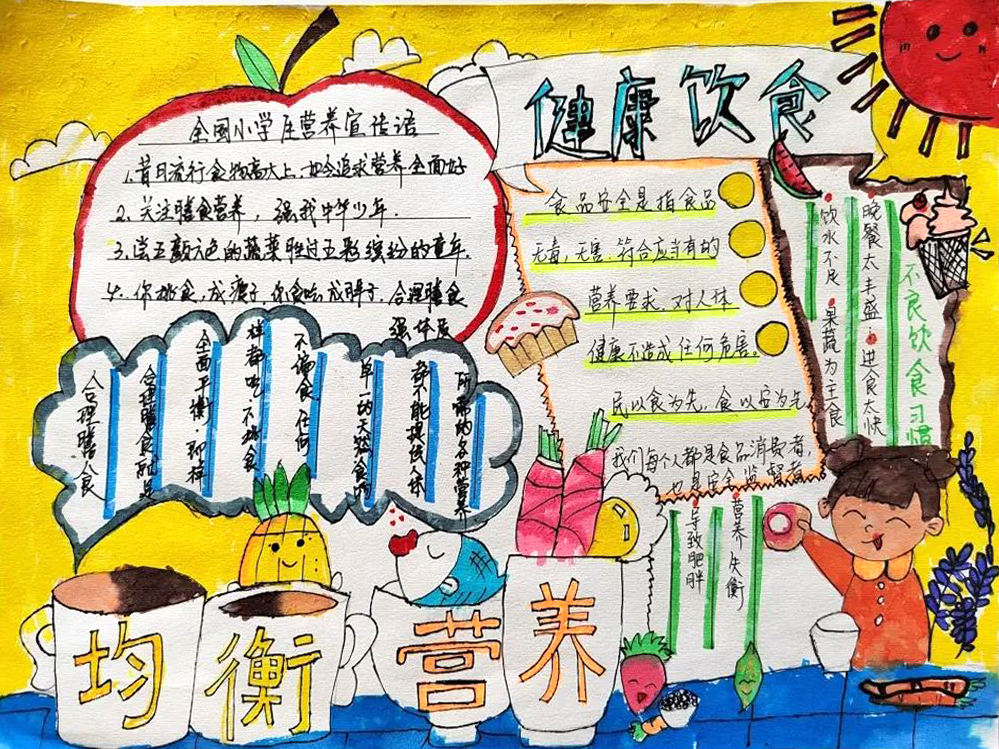 健康饮食
全国小学生营养宣传语
1.昔日流行食物高大上,如今追求营养全面好
2.关注膳食营养,强我中华少年.
3.尝五颜六色的蔬菜胜过五彩缤纷的童年.
4.你挑食,成瘦子,你贪吃,成胖子,合理膳食
强体质
食品安全是指食品
无毒,无害.符合应当有的
营养要求.对人体
健康不造成任何危害。
民以食为先,食以安为先
我们每个人都是食品消费者,
也是安全监督者
不良饮食习惯
晚餐太丰盛;进食太快
饮水不足 果蔬为主食
营养失衡
导致肥胖
合理膳食
合理膳食就是
全面平衡 即样
样都吃,不挑食
不偏食 任何
单一的天然食物
都不能提供人体
所需的各种营养
均衡营养